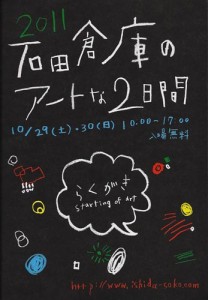 2011
石田倉庫の
アートな2日間
10/29(土)・30(日) 10:00-17:00
入場無料
らくがき
starting of art
http://www.ishida-soko.com